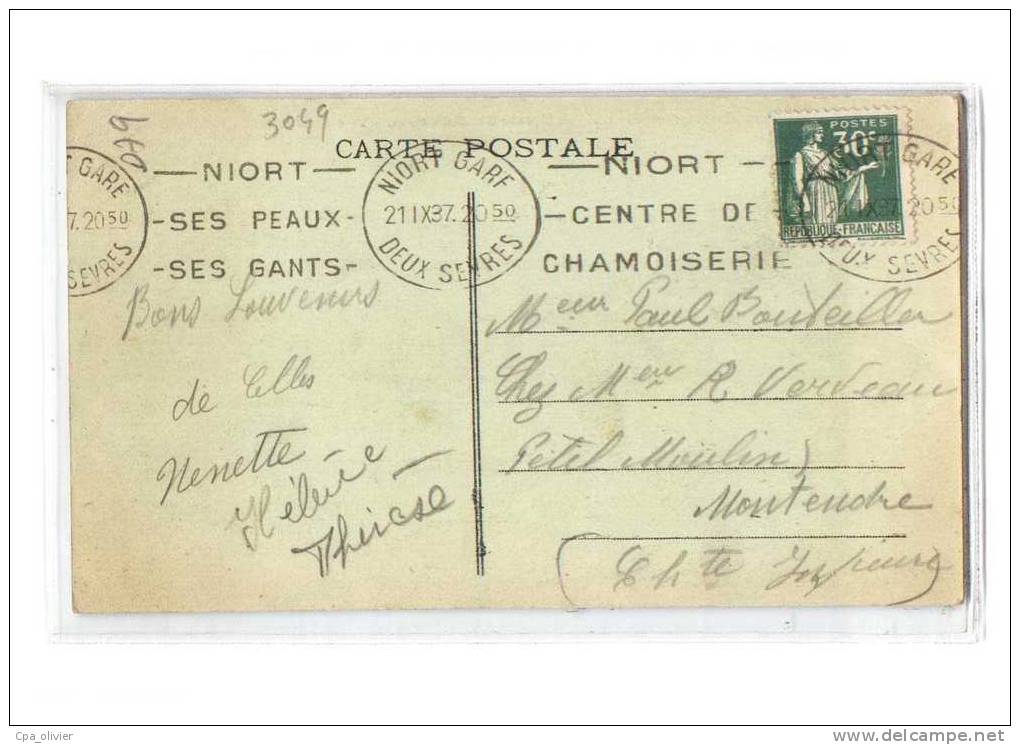 3049
079
CARTE POSTALE
NIORT
SES PEAUX
SES GANTS
NIORT GARE
21 IX 37. 20 50
DEUX SEVRES
NIORT
CENTRE DE
CHAMOISERIE
POSTES
30c
REPUBLIQUE-FRANÇAISE
GARE
7. 20 50
SEVRES
NIORT GARE
21 IX 37 20 50
DEUX SEVRES
Bons Souvenirs
de Elles
Nenette
Hélène
Thérèse
Meeur Paul Bouteiller
Chez Meur R Verdeau
Petit Moulin
Montendre
(Chte Inferieure)
Cpa_olivier
www.delcampe.net